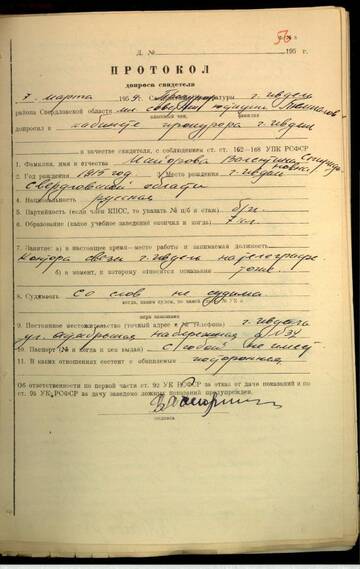 Л. №                195 г.
ПРОТОКОЛ
допроса свидетеля
7. марта 1959 г. Прокурор прокуратуры г. Ивдель
района Свердловской области мл советник юстиции Темпалов
классный чин, фамилия
допросил в кабинете прокурора г. Ивдель
в качестве свидетеля, с соблюдением ст. ст. 162—168 УПК РСФСР
1. Фамилия, имя и отчество Валентина
2. Год рождения 1915 год. Место рождения г. Ивдель
Свердловской области
4. Национальность русская
5. Партийность (если член КПСС, то указать № п/б и стаж) б/п.
6. Образование (какое учебное заведение окончил и когда) 7 кл.
7. Занятие: а) в настоящее время—место работы и занимаемая должность
Контора связи г. Ивдель на телеграфе
б) в момент, к которому относятся показания тоже.
8. Судимость Со слов не судима
когда, каким судом, по каким УК
9. Постоянное местожительство (точный адрес и № телефона) г. Ивдель
ул. набережная
вид занятия
10. Паспорт (№ и когда и кем выдан) с собой не имеет
11. В каких отношениях состоит с обвиняемым посторонняя
Об ответственности по первой части ст. 92 УК РСФСР за отказ от дачи показаний и по
ст. 95 УК РСФСР за дачу заведомо ложных показаний предупрежден.
подпись